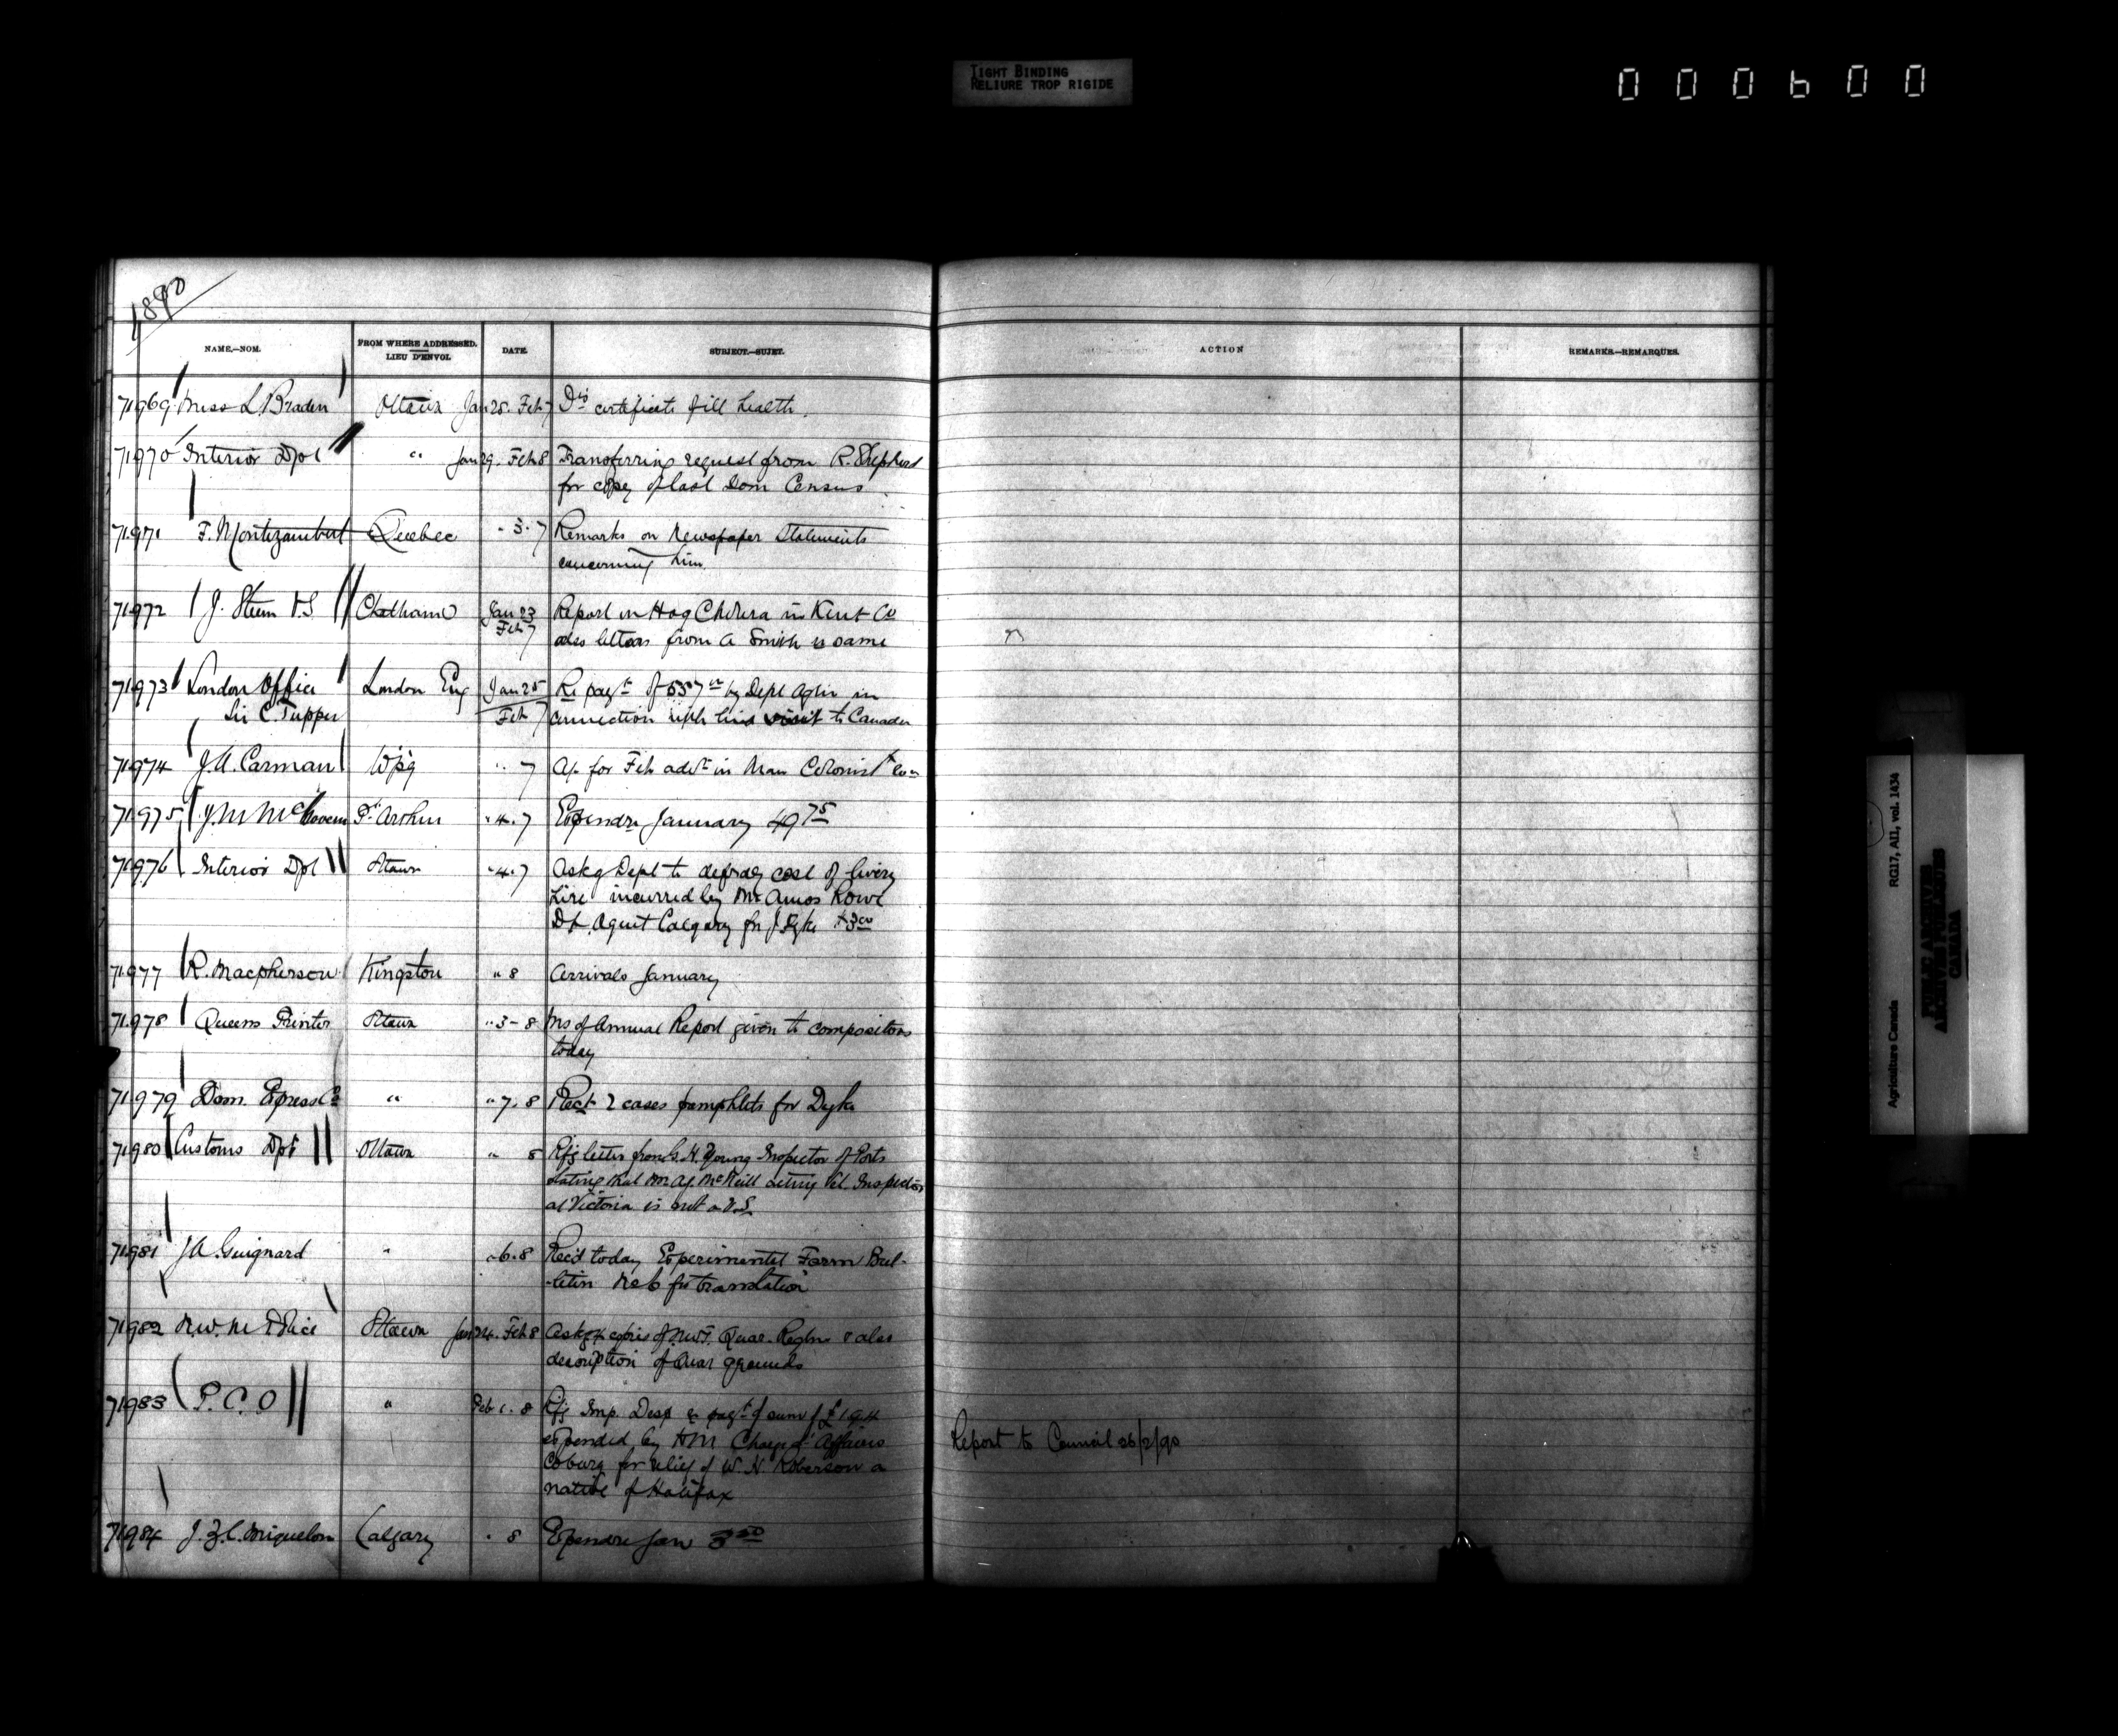 TIGHT BINDING
RELIURE TROP RIGIDE
000600
1890
NAME.—NOM.
FROM WHERE ADDRESSED.
LIEU D'ENVOI.
DATE.
SUBJECT.—SUJET.
ACTION
REMARKS.—REMARQUES.
71969 Miss L. Braden Ottawa Jan 28. Feb 7 Drs certificate of ill health.
71970 Interior Dpt " Jan 29. Feb 8 Transferring request from R. Shepherd
for copy of last Dom Census
71971 F. Montizambert Quebec " 3. 7 Remarks on Newspaper Statements
concerning him.
71972 J. Steen V.S Chatham Jan 23 Report on Hog Cholera in Kent Co
Feb 7 also letters from A Smith re same
71973 London Office London Eng Jan 25 Re payt of by Dept Agrin in
Sir C. Tupper Feb 7 connection with visit to Canada
71974 J. A. Carman Wpg " 7 for Feb advt in Man Colonist
71975 J. M McGovern Pt Arthur " 4. 7 Expendre January 49 75
71976 Interior Dpt Ottawa " 4. 7 Askg Dept to defray cost of livery
hire incurred by Mr Amos Rowe
Agent Calgary for J Dyke
71977 R. Macpherson Kingston " 8 Arrivals January
71978 Queens Printer Ottawa " 3-8 Ms of Annual Report given to compositors
today
71979 Dom. Express Co " " 7. 8 Rect 2 cases pamphlets for Dyke
71980 Customs Dpt Ottawa " 8 Rfg letter from G. H. Young Inspector of Ports
stating that Mr McNeill acting Vet. Inspector
at Victoria is not a V.S.
71981 J A. Guignard " " 6. 8 Recd today Experimental Farm Bul-
-letin No 6 for translation
71982 N.W. M Police Ottawa Jan 24. Feb 8 Askg copies of N.W.T. Quar. Reglns & also
description of Quar grounds
71983 P. C. O " Feb 1. 8 Rfg Imp. Desp re payt of sum of £19.4
expended by HM Charge d' Affaires
Coburg for relief of W. H. Roberson a
native of Halifax
Report to Council 26/2/90
71984 J. Z. C. Miquelon Calgary " 8 Expendre Jan 3 50
RG17, AII, vol. 1434
Agriculture Canada
PUBLIC ARCHIVES
ARCHIVES PUBLIQUES
CANADA